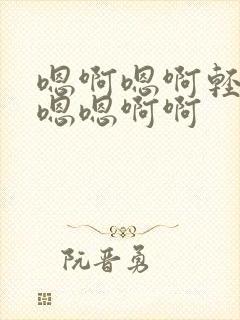 嗯啊嗯啊轻
嗯嗯啊啊
阮晋勇